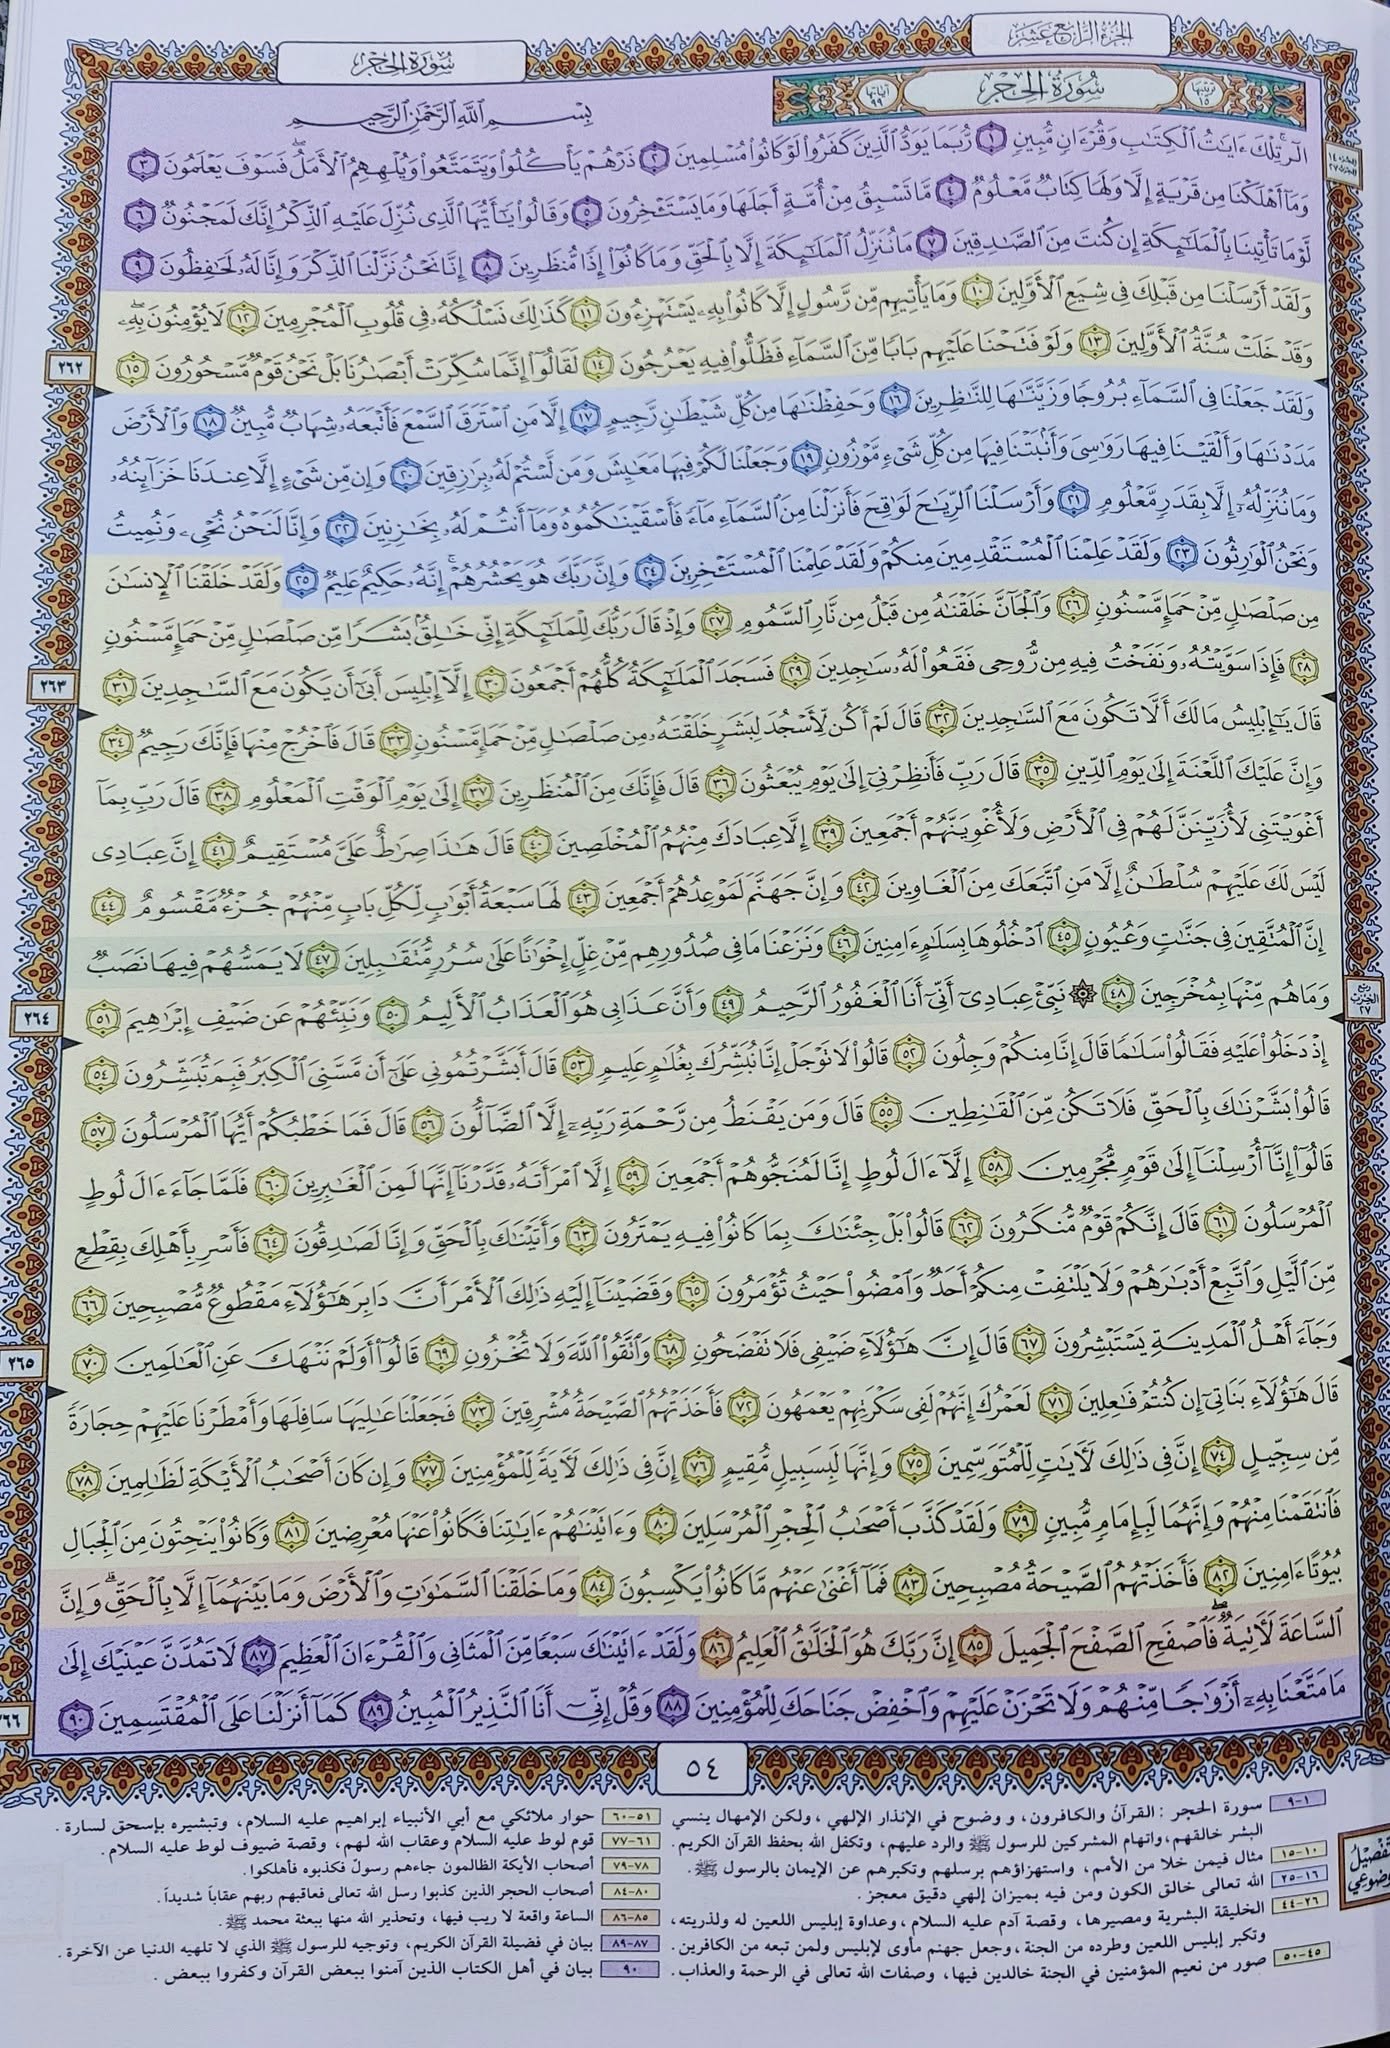 الجزء الرابع عشر
سورة الحجر
ترتيبها ١٥
سُورَةُ الحِجْرِ
آياتها ٩٩
بِسْمِ ٱللَّهِ ٱلرَّحْمَٰنِ ٱلرَّحِيمِ
الجزء ١٤ الحزب ٢٧
الٓر ۚ تِلْكَ ءَايَٰتُ ٱلْكِتَٰبِ وَقُرْءَانٍ مُّبِينٍ ١ رُّبَمَا يَوَدُّ ٱلَّذِينَ كَفَرُوا۟ لَوْ كَانُوا۟ مُسْلِمِينَ ٢ ذَرْهُمْ يَأْكُلُوا۟ وَيَتَمَتَّعُوا۟ وَيُلْهِهِمُ ٱلْأَمَلُ ۖ فَسَوْفَ يَعْلَمُونَ ٣
وَمَآ أَهْلَكْنَا مِن قَرْيَةٍ إِلَّا وَلَهَا كِتَابٌ مَّعْلُومٌ ٤ مَّا تَسْبِقُ مِنْ أُمَّةٍ أَجَلَهَا وَمَا يَسْتَـْٔخِرُونَ ٥ وَقَالُوا۟ يَٰٓأَيُّهَا ٱلَّذِى نُزِّلَ عَلَيْهِ ٱلذِّكْرُ إِنَّكَ لَمَجْنُونٌ ٦
لَّوْ مَا تَأْتِينَا بِٱلْمَلَٰٓئِكَةِ إِن كُنتَ مِنَ ٱلصَّٰدِقِينَ ٧ مَا نُنَزِّلُ ٱلْمَلَٰٓئِكَةَ إِلَّا بِٱلْحَقِّ وَمَا كَانُوٓا۟ إِذًا مُّنظَرِينَ ٨ إِنَّا نَحْنُ نَزَّلْنَا ٱلذِّكْرَ وَإِنَّا لَهُۥ لَحَٰفِظُونَ ٩
وَلَقَدْ أَرْسَلْنَا مِن قَبْلِكَ فِى شِيَعِ ٱلْأَوَّلِينَ ١٠ وَمَا يَأْتِيهِم مِّن رَّسُولٍ إِلَّا كَانُوا۟ بِهِۦ يَسْتَهْزِءُونَ ١١ كَذَٰلِكَ نَسْلُكُهُۥ فِى قُلُوبِ ٱلْمُجْرِمِينَ ١٢ لَا يُؤْمِنُونَ بِهِۦ ۖ
وَقَدْ خَلَتْ سُنَّةُ ٱلْأَوَّلِينَ ١٣ وَلَوْ فَتَحْنَا عَلَيْهِم بَابًا مِّنَ ٱلسَّمَآءِ فَظَلُّوا۟ فِيهِ يَعْرُجُونَ ١٤ لَقَالُوٓا۟ إِنَّمَا سُكِّرَتْ أَبْصَٰرُنَا بَلْ نَحْنُ قَوْمٌ مَّسْحُورُونَ ١٥
٢٦٢
وَلَقَدْ جَعَلْنَا فِى ٱلسَّمَآءِ بُرُوجًا وَزَيَّنَّٰهَا لِلنَّٰظِرِينَ ١٦ وَحَفِظْنَٰهَا مِن كُلِّ شَيْطَٰنٍ رَّجِيمٍ ١٧ إِلَّا مَنِ ٱسْتَرَقَ ٱلسَّمْعَ فَأَتْبَعَهُۥ شِهَابٌ مُّبِينٌ ١٨ وَٱلْأَرْضَ
مَدَدْنَٰهَا وَأَلْقَيْنَا فِيهَا رَوَٰسِىَ وَأَنۢبَتْنَا فِيهَا مِن كُلِّ شَىْءٍ مَّوْزُونٍ ١٩ وَجَعَلْنَا لَكُمْ فِيهَا مَعَٰيِشَ وَمَن لَّسْتُمْ لَهُۥ بِرَٰزِقِينَ ٢٠ وَإِن مِّن شَىْءٍ إِلَّا عِندَنَا خَزَآئِنُهُۥ
وَمَا نُنَزِّلُهُۥٓ إِلَّا بِقَدَرٍ مَّعْلُومٍ ٢١ وَأَرْسَلْنَا ٱلرِّيَٰحَ لَوَٰقِحَ فَأَنزَلْنَا مِنَ ٱلسَّمَآءِ مَآءً فَأَسْقَيْنَٰكُمُوهُ وَمَآ أَنتُمْ لَهُۥ بِخَٰزِنِينَ ٢٢ وَإِنَّا لَنَحْنُ نُحْىِۦ وَنُمِيتُ
وَنَحْنُ ٱلْوَٰرِثُونَ ٢٣ وَلَقَدْ عَلِمْنَا ٱلْمُسْتَقْدِمِينَ مِنكُمْ وَلَقَدْ عَلِمْنَا ٱلْمُسْتَـْٔخِرِينَ ٢٤ وَإِنَّ رَبَّكَ هُوَ يَحْشُرُهُمْ ۚ إِنَّهُۥ حَكِيمٌ عَلِيمٌ ٢٥ وَلَقَدْ خَلَقْنَا ٱلْإِنسَٰنَ
مِن صَلْصَٰلٍ مِّنْ حَمَإٍ مَّسْنُونٍ ٢٦ وَٱلْجَآنَّ خَلَقْنَٰهُ مِن قَبْلُ مِن نَّارِ ٱلسَّمُومِ ٢٧ وَإِذْ قَالَ رَبُّكَ لِلْمَلَٰٓئِكَةِ إِنِّى خَٰلِقٌۢ بَشَرًا مِّن صَلْصَٰلٍ مِّنْ حَمَإٍ مَّسْنُونٍ
٢٨ فَإِذَا سَوَّيْتُهُۥ وَنَفَخْتُ فِيهِ مِن رُّوحِى فَقَعُوا۟ لَهُۥ سَٰجِدِينَ ٢٩ فَسَجَدَ ٱلْمَلَٰٓئِكَةُ كُلُّهُمْ أَجْمَعُونَ ٣٠ إِلَّآ إِبْلِيسَ أَبَىٰٓ أَن يَكُونَ مَعَ ٱلسَّٰجِدِينَ ٣١
٢٦٣
قَالَ يَٰٓإِبْلِيسُ مَا لَكَ أَلَّا تَكُونَ مَعَ ٱلسَّٰجِدِينَ ٣٢ قَالَ لَمْ أَكُن لِّأَسْجُدَ لِبَشَرٍ خَلَقْتَهُۥ مِن صَلْصَٰلٍ مِّنْ حَمَإٍ مَّسْنُونٍ ٣٣ قَالَ فَٱخْرُجْ مِنْهَا فَإِنَّكَ رَجِيمٌ ٣٤
وَإِنَّ عَلَيْكَ ٱللَّعْنَةَ إِلَىٰ يَوْمِ ٱلدِّينِ ٣٥ قَالَ رَبِّ فَأَنظِرْنِىٓ إِلَىٰ يَوْمِ يُبْعَثُونَ ٣٦ قَالَ فَإِنَّكَ مِنَ ٱلْمُنظَرِينَ ٣٧ إِلَىٰ يَوْمِ ٱلْوَقْتِ ٱلْمَعْلُومِ ٣٨ قَالَ رَبِّ بِمَآ
أَغْوَيْتَنِى لَأُزَيِّنَنَّ لَهُمْ فِى ٱلْأَرْضِ وَلَأُغْوِيَنَّهُمْ أَجْمَعِينَ ٣٩ إِلَّا عِبَادَكَ مِنْهُمُ ٱلْمُخْلَصِينَ ٤٠ قَالَ هَٰذَا صِرَٰطٌ عَلَىَّ مُسْتَقِيمٌ ٤١ إِنَّ عِبَادِى
لَيْسَ لَكَ عَلَيْهِمْ سُلْطَٰنٌ إِلَّا مَنِ ٱتَّبَعَكَ مِنَ ٱلْغَاوِينَ ٤٢ وَإِنَّ جَهَنَّمَ لَمَوْعِدُهُمْ أَجْمَعِينَ ٤٣ لَهَا سَبْعَةُ أَبْوَٰبٍ لِّكُلِّ بَابٍ مِّنْهُمْ جُزْءٌ مَّقْسُومٌ ٤٤
إِنَّ ٱلْمُتَّقِينَ فِى جَنَّٰتٍ وَعُيُونٍ ٤٥ ٱدْخُلُوهَا بِسَلَٰمٍ ءَامِنِينَ ٤٦ وَنَزَعْنَا مَا فِى صُدُورِهِم مِّنْ غِلٍّ إِخْوَٰنًا عَلَىٰ سُرُرٍ مُّتَقَٰبِلِينَ ٤٧ لَا يَمَسُّهُمْ فِيهَا نَصَبٌ
وَمَا هُم مِّنْهَا بِمُخْرَجِينَ ٤٨ ۞ نَبِّئْ عِبَادِىٓ أَنِّىٓ أَنَا ٱلْغَفُورُ ٱلرَّحِيمُ ٤٩ وَأَنَّ عَذَابِى هُوَ ٱلْعَذَابُ ٱلْأَلِيمُ ٥٠ وَنَبِّئْهُمْ عَن ضَيْفِ إِبْرَٰهِيمَ ٥١
ربع الحزب ٢٧
٢٦٤
إِذْ دَخَلُوا۟ عَلَيْهِ فَقَالُوا۟ سَلَٰمًا قَالَ إِنَّا مِنكُمْ وَجِلُونَ ٥٢ قَالُوا۟ لَا تَوْجَلْ إِنَّا نُبَشِّرُكَ بِغُلَٰمٍ عَلِيمٍ ٥٣ قَالَ أَبَشَّرْتُمُونِى عَلَىٰٓ أَن مَّسَّنِىَ ٱلْكِبَرُ فَبِمَ تُبَشِّرُونَ ٥٤
قَالُوا۟ بَشَّرْنَٰكَ بِٱلْحَقِّ فَلَا تَكُن مِّنَ ٱلْقَٰنِطِينَ ٥٥ قَالَ وَمَن يَقْنَطُ مِن رَّحْمَةِ رَبِّهِۦٓ إِلَّا ٱلضَّآلُّونَ ٥٦ قَالَ فَمَا خَطْبُكُمْ أَيُّهَا ٱلْمُرْسَلُونَ ٥٧
قَالُوٓا۟ إِنَّآ أُرْسِلْنَآ إِلَىٰ قَوْمٍ مُّجْرِمِينَ ٥٨ إِلَّآ ءَالَ لُوطٍ إِنَّا لَمُنَجُّوهُمْ أَجْمَعِينَ ٥٩ إِلَّا ٱمْرَأَتَهُۥ قَدَّرْنَآ إِنَّهَا لَمِنَ ٱلْغَٰبِرِينَ ٦٠ فَلَمَّا جَآءَ ءَالَ لُوطٍ
ٱلْمُرْسَلُونَ ٦١ قَالَ إِنَّكُمْ قَوْمٌ مُّنكَرُونَ ٦٢ قَالُوا۟ بَلْ جِئْنَٰكَ بِمَا كَانُوا۟ فِيهِ يَمْتَرُونَ ٦٣ وَأَتَيْنَٰكَ بِٱلْحَقِّ وَإِنَّا لَصَٰدِقُونَ ٦٤ فَأَسْرِ بِأَهْلِكَ بِقِطْعٍ
مِّنَ ٱلَّيْلِ وَٱتَّبِعْ أَدْبَٰرَهُمْ وَلَا يَلْتَفِتْ مِنكُمْ أَحَدٌ وَٱمْضُوا۟ حَيْثُ تُؤْمَرُونَ ٦٥ وَقَضَيْنَآ إِلَيْهِ ذَٰلِكَ ٱلْأَمْرَ أَنَّ دَابِرَ هَٰٓؤُلَآءِ مَقْطُوعٌ مُّصْبِحِينَ ٦٦
وَجَآءَ أَهْلُ ٱلْمَدِينَةِ يَسْتَبْشِرُونَ ٦٧ قَالَ إِنَّ هَٰٓؤُلَآءِ ضَيْفِى فَلَا تَفْضَحُونِ ٦٨ وَٱتَّقُوا۟ ٱللَّهَ وَلَا تُخْزُونِ ٦٩ قَالُوٓا۟ أَوَلَمْ نَنْهَكَ عَنِ ٱلْعَٰلَمِينَ ٧٠
٢٦٥
قَالَ هَٰٓؤُلَآءِ بَنَاتِىٓ إِن كُنتُمْ فَٰعِلِينَ ٧١ لَعَمْرُكَ إِنَّهُمْ لَفِى سَكْرَتِهِمْ يَعْمَهُونَ ٧٢ فَأَخَذَتْهُمُ ٱلصَّيْحَةُ مُشْرِقِينَ ٧٣ فَجَعَلْنَا عَٰلِيَهَا سَافِلَهَا وَأَمْطَرْنَا عَلَيْهِمْ حِجَارَةً
مِّن سِجِّيلٍ ٧٤ إِنَّ فِى ذَٰلِكَ لَءَايَٰتٍ لِّلْمُتَوَسِّمِينَ ٧٥ وَإِنَّهَا لَبِسَبِيلٍ مُّقِيمٍ ٧٦ إِنَّ فِى ذَٰلِكَ لَءَايَةً لِّلْمُؤْمِنِينَ ٧٧ وَإِن كَانَ أَصْحَٰبُ ٱلْأَيْكَةِ لَظَٰلِمِينَ ٧٨
فَٱنتَقَمْنَا مِنْهُمْ وَإِنَّهُمَا لَبِإِمَامٍ مُّبِينٍ ٧٩ وَلَقَدْ كَذَّبَ أَصْحَٰبُ ٱلْحِجْرِ ٱلْمُرْسَلِينَ ٨٠ وَءَاتَيْنَٰهُمْ ءَايَٰتِنَا فَكَانُوا۟ عَنْهَا مُعْرِضِينَ ٨١ وَكَانُوا۟ يَنْحِتُونَ مِنَ ٱلْجِبَالِ
بُيُوتًا ءَامِنِينَ ٨٢ فَأَخَذَتْهُمُ ٱلصَّيْحَةُ مُصْبِحِينَ ٨٣ فَمَآ أَغْنَىٰ عَنْهُم مَّا كَانُوا۟ يَكْسِبُونَ ٨٤ وَمَا خَلَقْنَا ٱلسَّمَٰوَٰتِ وَٱلْأَرْضَ وَمَا بَيْنَهُمَآ إِلَّا بِٱلْحَقِّ ۗ وَإِنَّ
ٱلسَّاعَةَ لَءَاتِيَةٌ ۖ فَٱصْفَحِ ٱلصَّفْحَ ٱلْجَمِيلَ ٨٥ إِنَّ رَبَّكَ هُوَ ٱلْخَلَّٰقُ ٱلْعَلِيمُ ٨٦ وَلَقَدْ ءَاتَيْنَٰكَ سَبْعًا مِّنَ ٱلْمَثَانِى وَٱلْقُرْءَانَ ٱلْعَظِيمَ ٨٧ لَا تَمُدَّنَّ عَيْنَيْكَ إِلَىٰ
مَا مَتَّعْنَا بِهِۦٓ أَزْوَٰجًا مِّنْهُمْ وَلَا تَحْزَنْ عَلَيْهِمْ وَٱخْفِضْ جَنَاحَكَ لِلْمُؤْمِنِينَ ٨٨ وَقُلْ إِنِّىٓ أَنَا ٱلنَّذِيرُ ٱلْمُبِينُ ٨٩ كَمَآ أَنزَلْنَا عَلَى ٱلْمُقْتَسِمِينَ ٩٠
٥٤
١-٩ سورة الحجر : القرآن والكافرون، و وضوح في الإنذار الإلهي ، ولكن الإمهال ينسي
البشر خالقهم، واتهام المشركين للرسول ﷺ والرد عليهم، وتكفل الله بحفظ القرآن الكريم.
١٠-١٥ مثال فيمن خلا من الأمم، واستهزاؤهم برسلهم وتكبرهم عن الإيمان بالرسول ﷺ.
١٦-٢٥ الله تعالى خالق الكون ومن فيه بميزان إلهي دقيق معجز.
٢٦-٤٤ الخليقة البشرية ومصيرها، وقصة آدم عليه السلام، وعداوة إبليس اللعين له ولذريته،
وتكبر إبليس اللعين وطرده من الجنة، وجعل جهنم مأوى لإبليس ولمن تبعه من الكافرين.
٤٥-٥٠ صور من نعيم المؤمنين في الجنة خالدين فيها، وصفات الله تعالى في الرحمة والعذاب.
٥١-٦٠ حوار ملائكي مع أبي الأنبياء إبراهيم عليه السلام، وتبشيره بإسحق لسارة.
٦١-٧٧ قوم لوط عليه السلام وعقاب الله لهم، وقصة ضيوف لوط عليه السلام.
٧٨-٧٩ أصحاب الأيكة الظالمون جاءهم رسولٌ فكذبوه فأهلكوا.
٨٠-٨٤ أصحاب الحجر الذين كذبوا رسل الله تعالى فعاقبهم ربهم عقاباً شديداً.
٨٥-٨٦ الساعة واقعة لا ريب فيها، وتحذير الله منها ببعثة محمد ﷺ.
٨٧-٨٩ بيان في فضيلة القرآن الكريم، وتوجيه للرسول ﷺ الذي لا تلهيه الدنيا عن الآخرة.
٩٠ بيان في أهل الكتاب الذين آمنوا ببعض القرآن وكفروا ببعض.